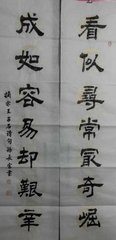 看似尋常最奇崛
成如容易却艱辛